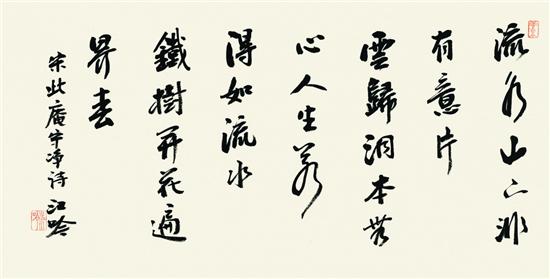 流水山下非
有意片
雲歸洞本無
心人生若
得如流水
鐵樹開花遍
界春
宋此庵守淨诗 江吟